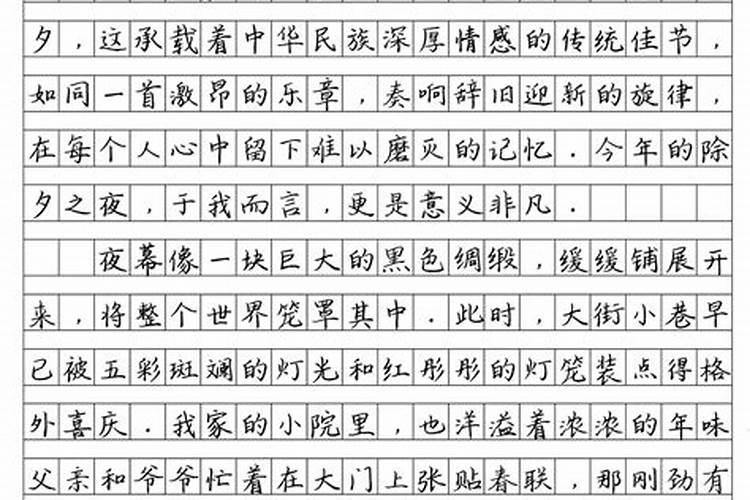 夕，这承载着中华民族深厚情感的传统佳节，
如同一首激昂的乐章，奏响辞旧迎新的旋律，
在每个人心中留下难以磨灭的记忆．今年的除
夕之夜，于我而言，更是意义非凡．
夜幕像一块巨大的黑色绸缎，缓缓铺展开
来，将整个世界笼罩其中．此时，大街小巷早
已被五彩斑斓的灯光和红彤彤的灯笼装点得格
外喜庆．我家的小院里，也洋溢着浓浓的年味
父亲和爷爷忙着在大门上张贴春联，那刚劲有